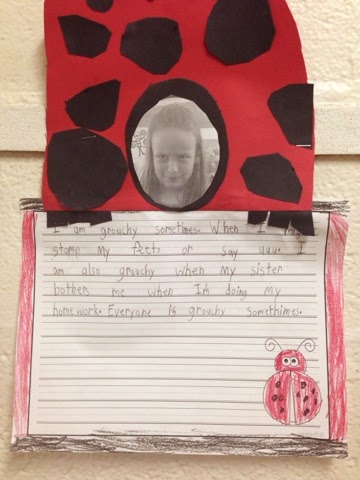 I am grouchy sometimes. When I
stamp My feets or say uuu. I
am also grouchy when My sister
bothers me when I'm doing my
homework. Everyone is grouchy somethimes.